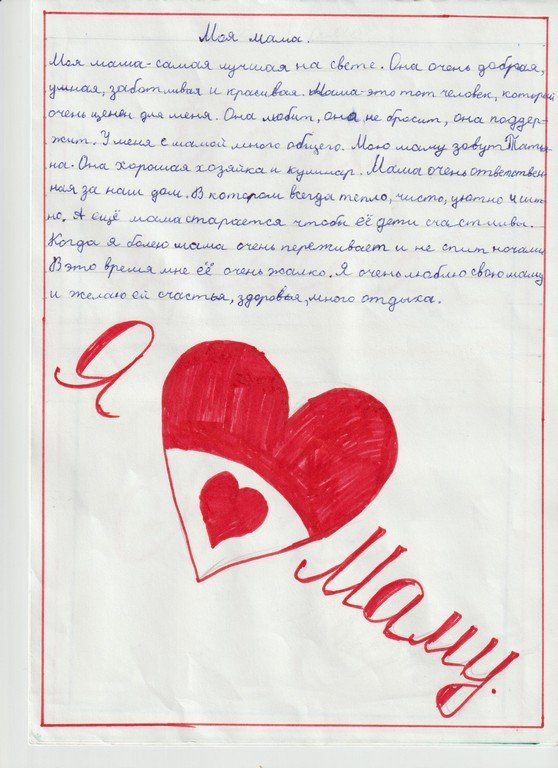 Моя мама.
Моя мама-самая лучшая на свете. Она очень добрая,
умная, заботливая и красивая. Мама-это тот человек, который
очень ценен для меня. Она любит, она не бросит, она поддер-
жит. У меня с мамой много общего. Мою маму зовут Татья-
на. Она хорошая хозяйка и кулинар. Мама очень ответствен-
ная за наш дом. В котором всегда тепло, чисто, уютно
но. А ещё мама старается чтобы её дети счастливы.
Когда я болею мама очень переживает и не спит ночами
В это время мне её очень жалко. Я очень люблю свою маму
и желаю ей счастья, здоровья, много отдыха.
Я
Маму.